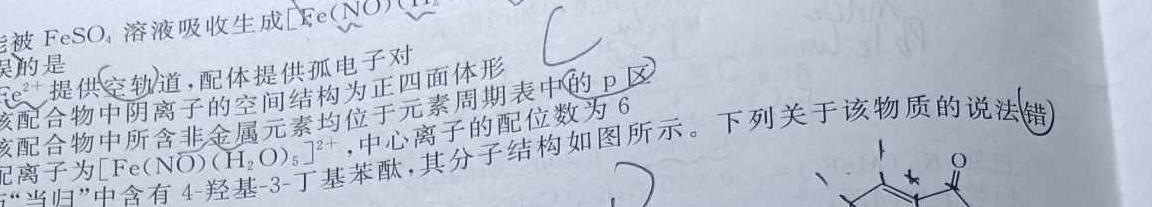 被 FeSO₄ 溶液吸收生成[Fe(NO)(H₂
的是
Fe²⁺ 提供空轨道,配体提供孤电子对
该配合物中阴离子的空间结构为正四面体形
该配合物中所含非金属元素均位于元素周期表中的 p 区
配离子为[Fe(NO)(H₂O)₅]²⁺,中心离子的配位数为 6
“当归”中含有 4-羟基-3-丁基苯酞,其分子结构如图所示。下列关于该物质的说法错
C
O